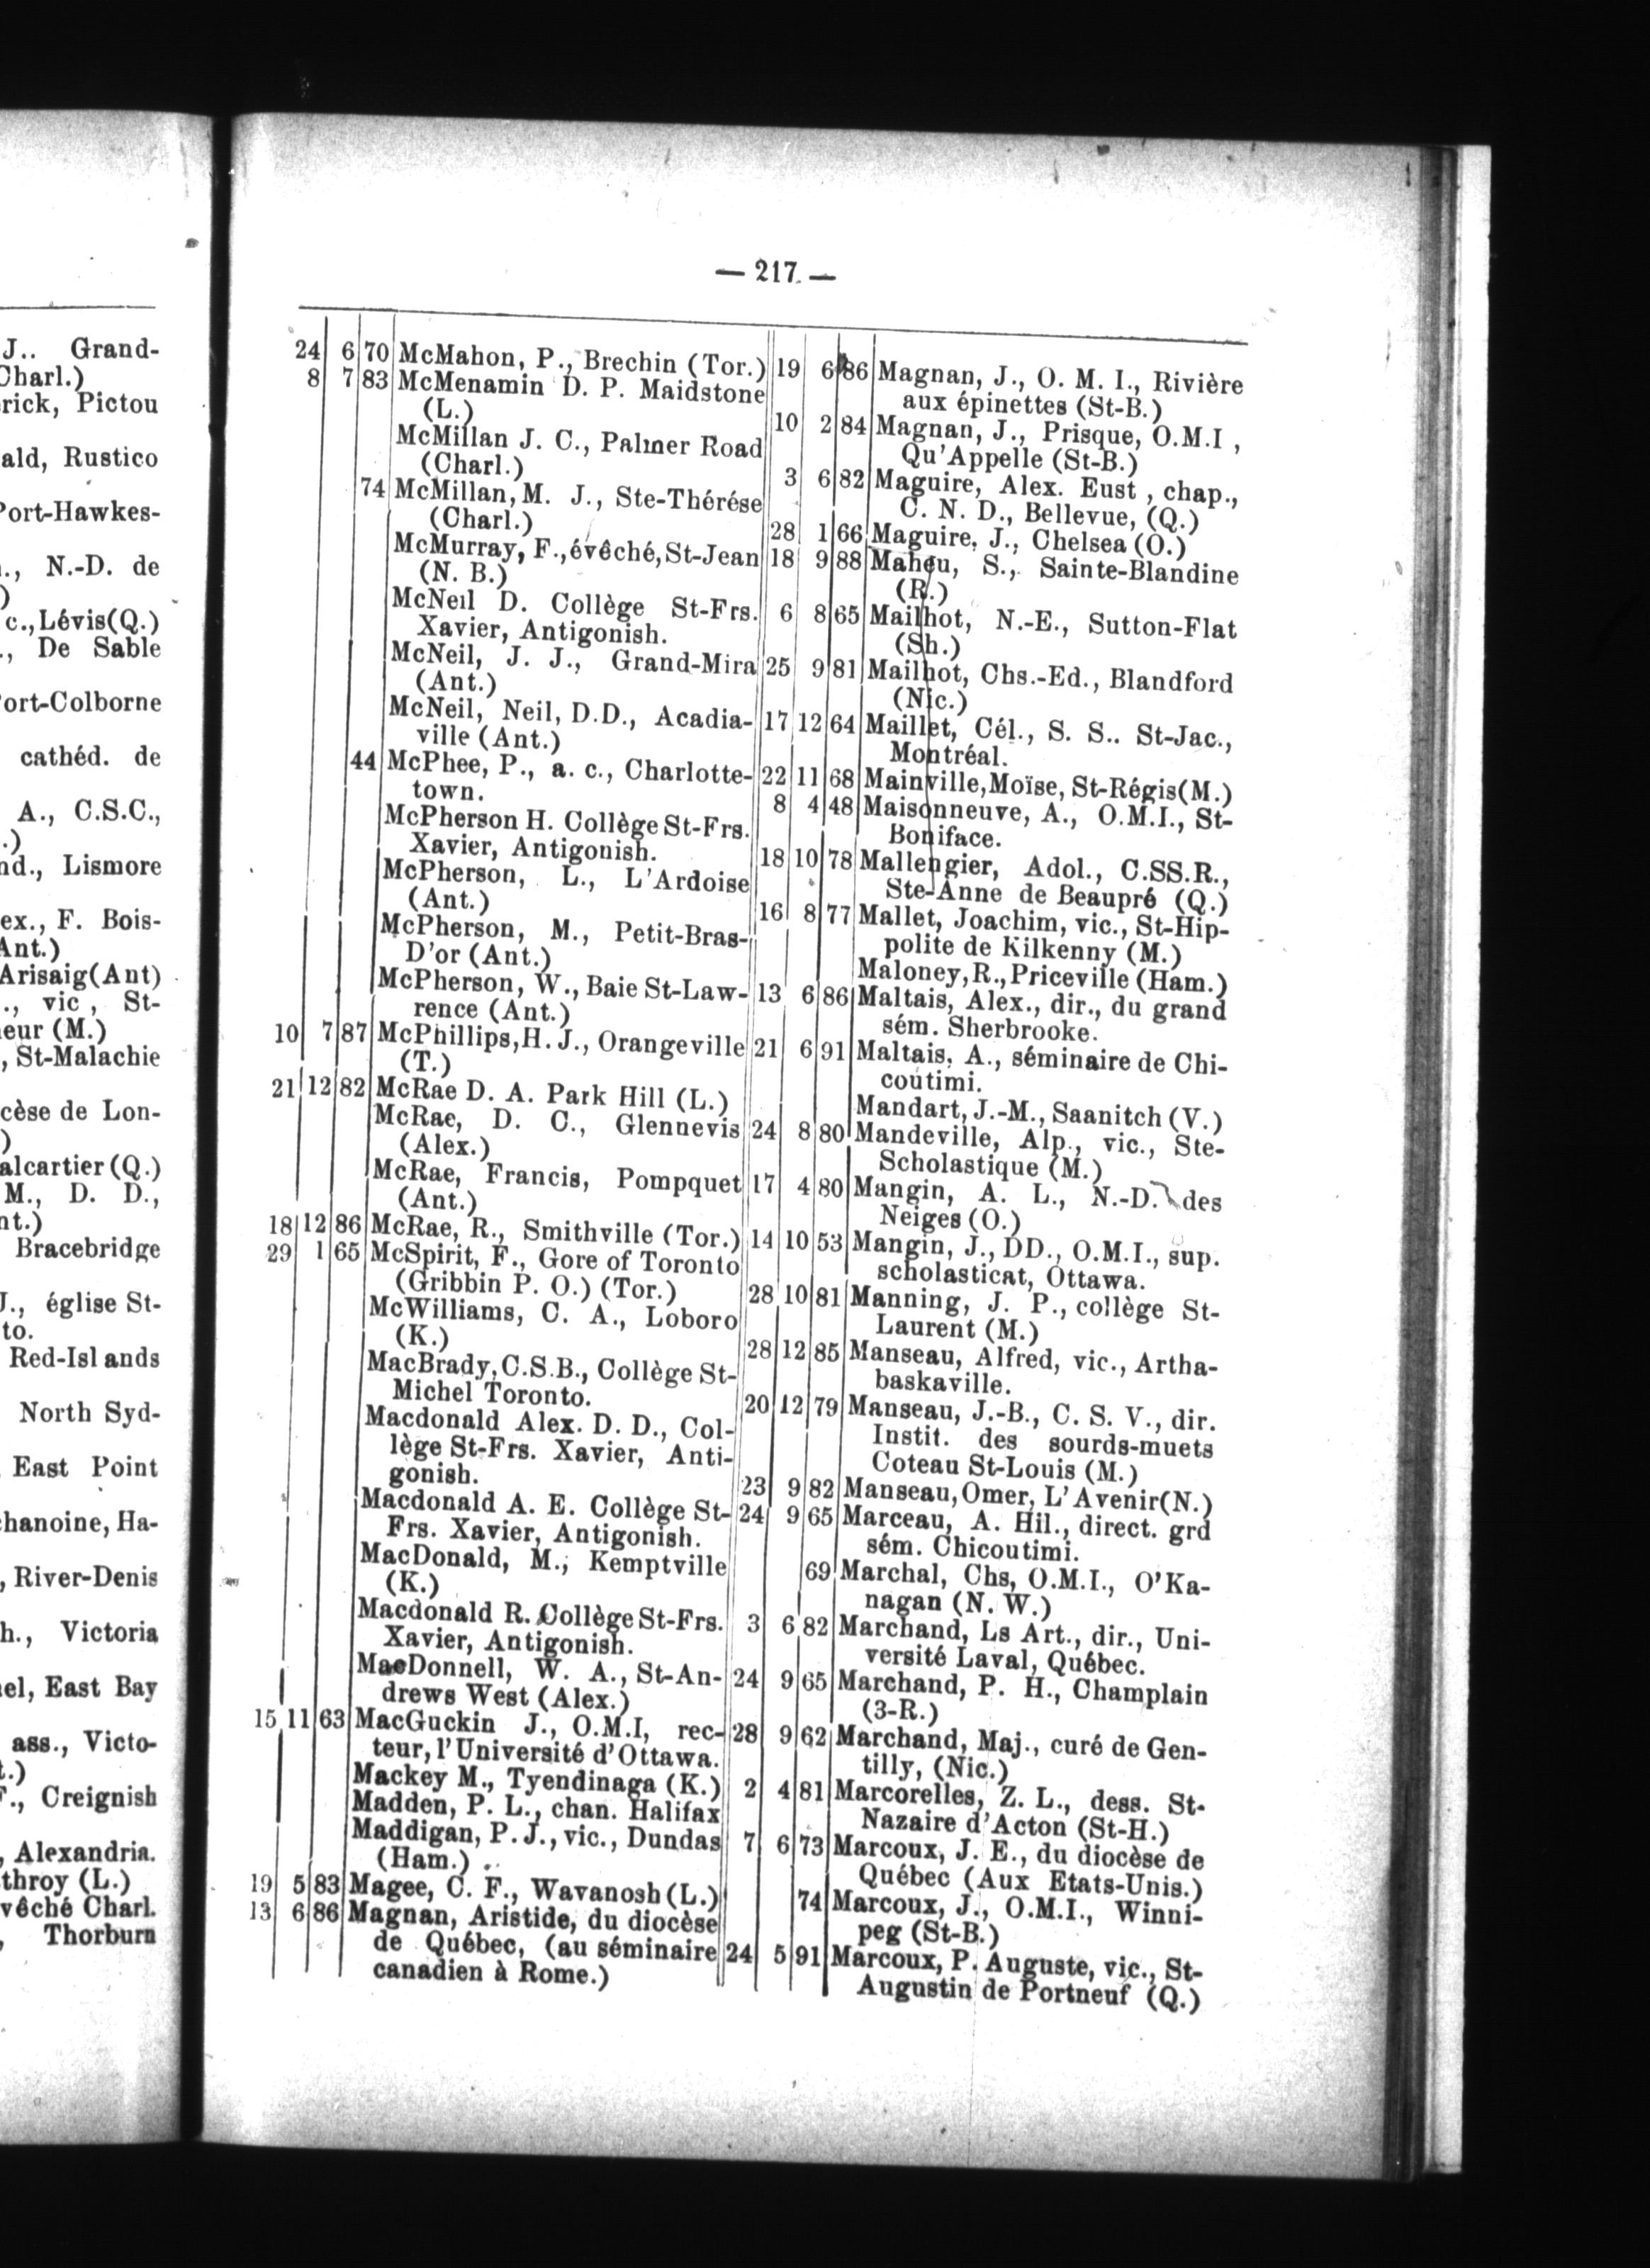 J.. Grand-
Charl.)
rick, Pictou
ald, Rustico
Port-Hawkes-
., N.-D. de
)
c., Lévis(Q.)
., De Sable
Port-Colborne
cathéd. de
A., C.S.C.,
.)
nd., Lismore
ex., F. Bois-
Ant.)
Arisaig(Ant)
., vic, St-
eur (M.)
, St-Malachie
cèse de Lon-
)
alcartier (Q.)
M., D. D.,
nt.)
Bracebridge
J., église St-
to.
Red-Islands
North Syd-
East Point
chanoine, Ha-
, River-Denis
h., Victoria
el, East Bay
ass., Victo-
t.)
F., Creignish
, Alexandria.
throy (L.)
vêché Charl.
, Thorburn
— 217 —
24 6 70 McMahon, P., Brechin (Tor.)
8 7 83 McMenamin D. P. Maidstone
(L.)
McMillan J. C., Palmer Road
(Charl.)
74 McMillan, M. J., Ste-Thérése
(Charl.)
McMurray, F., évêché, St-Jean
(N. B.)
McNeil D. Collège St-Frs.
Xavier, Antigonish.
McNeil, J. J., Grand-Mira
(Ant.)
McNeil, Neil, D.D., Acadia-
ville (Ant.)
44 McPhee, P., a. c., Charlotte-
town.
McPherson H. Collège St-Frs.
Xavier, Antigonish.
McPherson, L., L'Ardoise
(Ant.)
McPherson, M., Petit-Bras-
D'or (Ant.)
McPherson, W., Baie St-Law-
rence (Ant.)
10 7 87 McPhillips, H. J., Orangeville
(T.)
21 12 82 McRae D. A. Park Hill (L.)
McRae, D. C., Glennevis
(Alex.)
McRae, Francis, Pompquet
(Ant.)
18 12 86 McRae, R., Smithville (Tor.)
29 1 65 McSpirit, F., Gore of Toronto
(Gribbin P. O.) (Tor.)
McWilliams, C. A., Loboro
(K.)
MacBrady, C.S.B., Collège St-
Michel Toronto.
Macdonald Alex. D. D., Col-
lège St-Frs. Xavier, Anti-
gonish.
Macdonald A. E. Collège St-
Frs. Xavier, Antigonish.
MacDonald, M., Kemptville
(K.)
Macdonald R. Collège St-Frs.
Xavier, Antigonish.
MacDonnell, W. A., St-An-
drews West (Alex.)
15 11 63 MacGuckin J., O.M.I, rec-
teur, l'Université d'Ottawa.
Mackey M., Tyendinaga (K.)
Madden, P. L., chan. Halifax
Maddigan, P. J., vic., Dundas
(Ham.)
19 5 83 Magee, C. F., Wavanosh (L.)
13 6 86 Magnan, Aristide, du diocèse
de Québec, (au séminaire
canadien à Rome.)
19 6 86 Magnan, J., O. M. I., Rivière
aux épinettes (St-B.)
10 2 84 Magnan, J., Prisque, O.M.I,
Qu'Appelle (St-B.)
3 6 82 Maguire, Alex. Eust, chap.,
C. N. D., Bellevue, (Q.)
28 1 66 Maguire, J., Chelsea (O.)
18 9 88 Maheu, S., Sainte-Blandine
(R.)
6 8 65 Mailhot, N.-E., Sutton-Flat
(Sh.)
25 9 81 Mailhot, Chs.-Ed., Blandford
(Nic.)
17 12 64 Maillet, Cél., S. S.. St-Jac.,
Montréal.
22 11 68 Mainville, Moïse, St-Régis(M.)
8 4 48 Maisonneuve, A., O.M.I., St-
Boniface.
18 10 78 Mallengier, Adol., C.SS.R.,
Ste-Anne de Beaupré (Q.)
16 8 77 Mallet, Joachim, vic., St-Hip-
polite de Kilkenny (M.)
Maloney, R., Priceville (Ham.)
13 6 86 Maltais, Alex., dir., du grand
sém. Sherbrooke.
21 6 91 Maltais, A., séminaire de Chi-
coutimi.
Mandart, J.-M., Saanitch (V.)
24 8 80 Mandeville, Alp., vic., Ste-
Scholastique (M.)
17 4 80 Mangin, A. L., N.-D. des
Neiges (O.)
14 10 53 Mangin, J., DD., O.M.I., sup.
scholasticat, Ottawa.
28 10 81 Manning, J. P., collège St-
Laurent (M.)
28 12 85 Manseau, Alfred, vic., Artha-
baskaville.
20 12 79 Manseau, J.-B., C. S. V., dir.
Instit. des sourds-muets
Coteau St-Louis (M.)
23 9 82 Manseau, Omer, L'Avenir(N.)
24 9 65 Marceau, A. Hil., direct. grd
sém. Chicoutimi.
69 Marchal, Chs, O.M.I., O'Ka-
nagan (N. W.)
3 6 82 Marchand, Ls Art., dir., Uni-
versité Laval, Québec.
24 9 65 Marchand, P. H., Champlain
(3-R.)
28 9 62 Marchand, Maj., curé de Gen-
tilly, (Nic.)
2 4 81 Marcorelles, Z. L., dess. St-
Nazaire d'Acton (St-H.)
7 6 73 Marcoux, J. E., du diocèse de
Québec (Aux Etats-Unis.)
74 Marcoux, J., O.M.I., Winni-
peg (St-B.)
24 5 91 Marcoux, P. Auguste, vic., St-
Augustin de Portneuf (Q.)